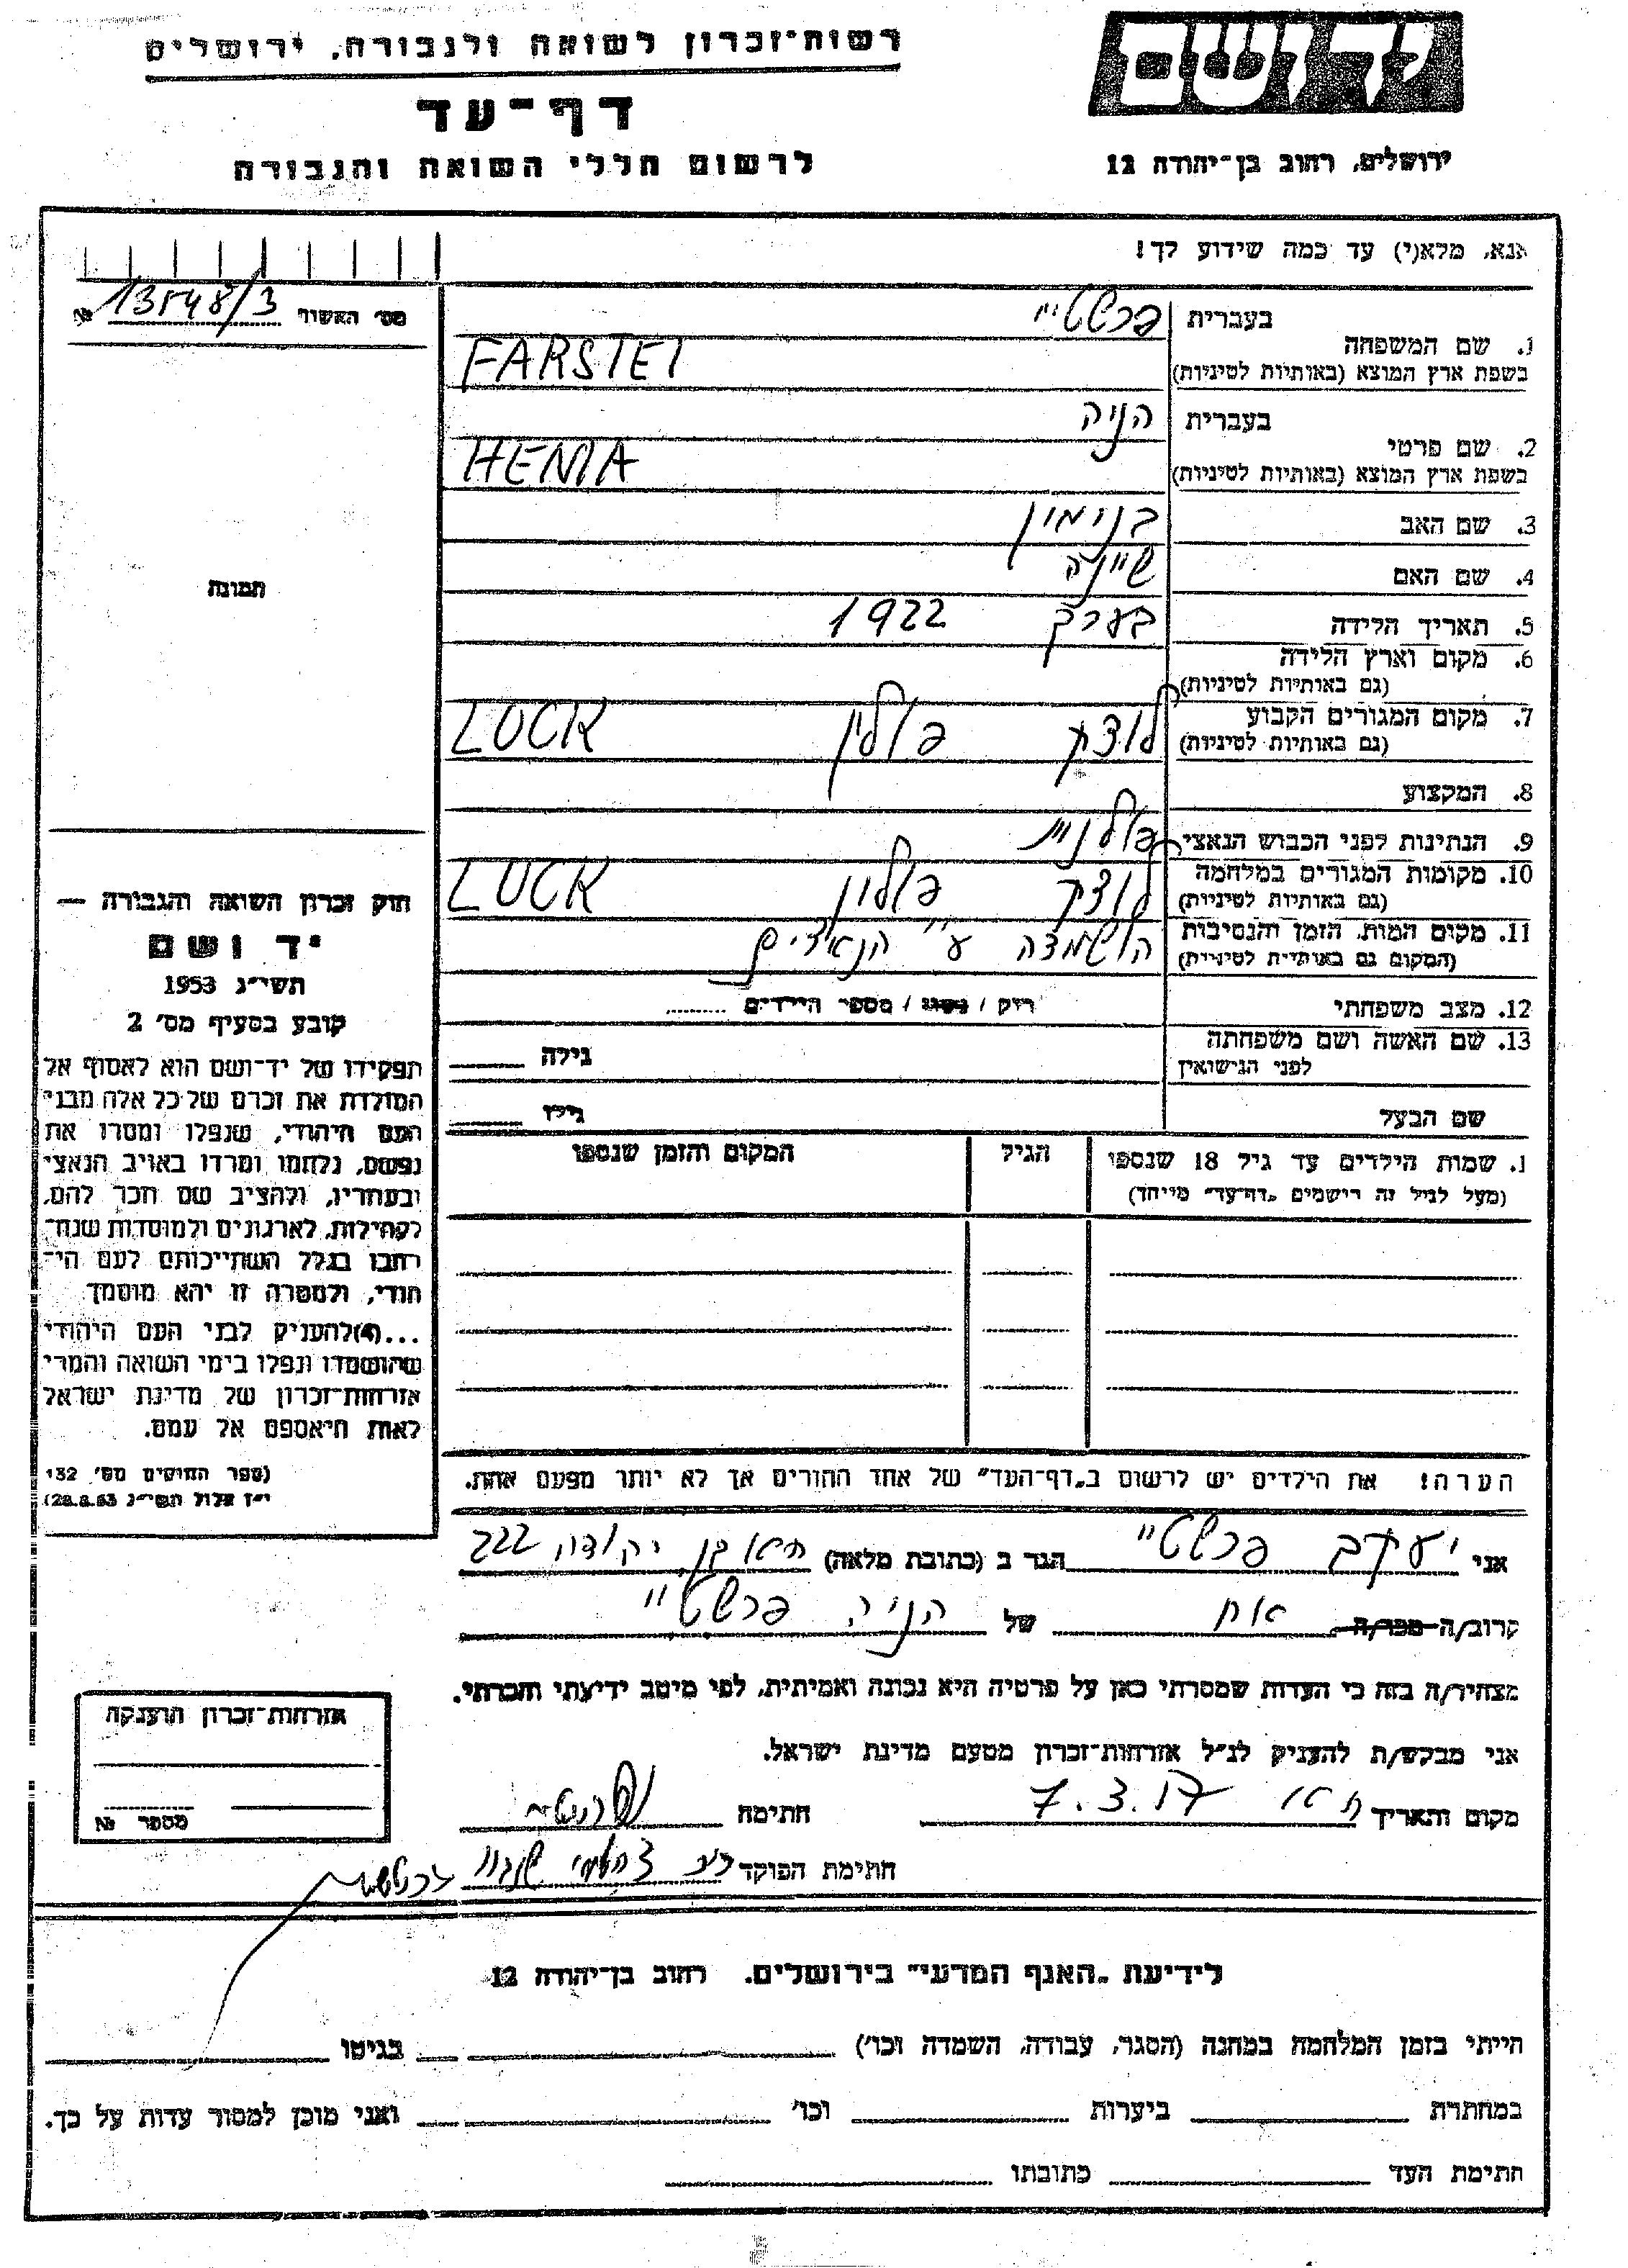 רשות־זכרון לשואה ולגבורה, ירושלים
יד ושם
דף־עד
לרשום חללי השואה והגבורה
ירושלים, רחוב בן־יהודה 12
אנא, מלא(י) עד כמה שידוע לך!
מס׳ האשור 13548/3 №
בעברית פרשטיי
1. שם המשפחה
בשפת ארץ המוצא (באותיות לטיניות) FARSTEI
בעברית הניה
2. שם פרטי
בשפת ארץ המוצא (באותיות לטיניות) HENIA
3. שם האב בנימין
4. שם האם שיינה
5. תאריך הלידה בערך 1922
6. מקום וארץ הלידה
(גם באותיות לטיניות)
7. מקום המגורים הקבוע
(גם באותיות לטיניות) לוצק פולין LUCK
8. המקצוע
9. הנתינות לפני הכבוש הנאצי פולנית
10. מקומות המגורים במלחמה
(גם באותיות לטיניות) לוצק פולין LUCK
11. מקום המות, הזמן והנסיבות
(המקום גם באותיות לטיניות) הושמדה ע״י הנאצים
12. מצב משפחתי רוק / נשוי / מספר הילדים
13. שם האשה ושם משפחתה
לפני הנישואין גילה
שם הבעל גילו
1. שמות הילדים עד גיל 18 שנספו הגיל המקום והזמן שנספו
(מעל לגיל זה רישמים „דף־עד״ מיוחד)
הערה! את הילדים יש לרשום ב„דף־העד״ של אחד ההורים אך לא יותר מפעם אחת.
תמונה
חוק זכרון השואה והגבורה —
יד ושם
תשי״ג 1953
קובע בסעיף מס׳ 2
תפקידו של יד־ושם הוא לאסוף אל
המולדת את זכרם של כל אלה מבני
העם היהודי, שנפלו ומסרו את
נפשם, נלחמו ומרדו באויב הנאצי
ובעוזריו, ולהציב שם וזכר להם,
לקהילות, לארגונים ולמוסדות שנח־
רבו בגלל השתייכותם לעם הי־
הודי, ולמטרה זו יהא מוסמך
...(4)להעניק לבני העם היהודי
שהושמדו ונפלו בימי השואה והמרי
אזרחות־זכרון של מדינת ישראל
לאות היאספם אל עמם.
(ספר החוקים מס׳ 132
י״ז אלול תשי״ג 28.8.53)
אני יעקב פרשטיי הגר ב (כתובת מלאה) ת״א בן יהודה 222
קרוב/ה מכר/ה אח של הניה פרשטיי
מצהיר/ה בזה כי העדות שמסרתי כאן על פרטיה היא נכונה ואמיתית, לפי מיטב ידיעתי והכרתי.
אני מבקש/ת להעניק לנ״ל אזרחות־זכרון מטעם מדינת ישראל.
מקום והתאריך ת״א חתימה
חתימת הפוקד
אזרחות־זכרון הוענקה
מספר №
לידיעת „האגף המדעי״ בירושלים. רחוב בן־יהודה 12
הייתי בזמן המלחמה במחנה (הסגר, עבודה, השמדה וכו׳) בגיטו
במחתרת ביערות וכו׳ ואני מוכן למסור עדות על כך.
חתימת העד כתובתו